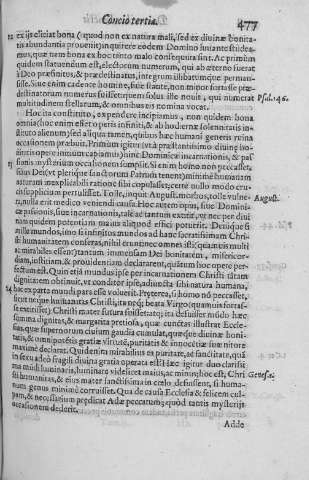 Concio tertia. 477
ex ijs eliciat bona (quod non ex natura mali, sed ex diuinæ bonita-
tis abundantia prouenit) inquirere eodem Domino iuuante studea-
mus, quæ nam bona ex hoc tanto malo consequuta sint. Ac primùm
quidem statuendum est, electorum numerum, qui ab æterno fuerat
à Deo præfinitus, & prædestinatus, integrum illibatumque perman-
sisse. Siue enim cadente homine, siue stante, non minor fortasse præ-
destinatorum numerus fuisset: quem solus ille nouit, qui numerat Psal. 146.
multitudinem stellarum, & omnibus eis nomina vocat.
Hoc ita constituto, expendere incipiamus, non quidem bona
omnia (hoc enim esset operis infiniti, & ab hodiernæ solennitatis in-
stituto alienum) sed aliqua tamen, quibus hæc humani generis ruina
occasionem præbuit. Primùm igitur (vt à præstantissimo diuinæ bo-
nitatis opere initium capiamus) hinc Dominicæ incarnationis, & pas
sionis mysterium occasionem sumpsit. Si enim homo non peccasset,
filius Dei (vt plerique sanctorum Patrum tenent) minimè humanam
naturam inexplicabili ratione sibi copulasset; certè nullo modo cru-
cis supplicium pertulisset. Tolle, inquit August. morbos, tolle vulne- August.
ra, nulla erit medico veniendi causa. Hoc autem opus, siue Domini-
cæ passionis, siue incarnationis, tale ac tantum extitit, vt nec per diui
nam quidem potentiam maius aliquod effici potuerit. Denique si
mille mundos, imo si infinitos mundos ad hanc sacratissimam Chri-
sti humanitatem conferas, nihil erunt: nec omnes isti (quantumuis multi
& mirabiles essent) tantùm immensam Dei bonitatem, misericor-
diam, iustitiam, & prouidentiam declararent, quàm hoc opere per-
fectum est. Quin etiam mundus ipse per incarnationem Christi tātam
dignitatem obtinuit, vt conditor ipse, adiuncta sibi natura humana,
hac ex parte mundi pars esse voluerit. Præterea, si homo nō peccasset,
sicut neque humanitas Christi, ita neque beata Virgo (quamuis forsas-
se extitisset) Christi mater futura fuisset: atque ita defuisset mūdo hæc
summa dignitas, & margarita pretiosa, quæ cunctas illustrat Eccle-
sias, quæ supernorum ciuium gaudia cumulat, quæque diuinæ boni-
tatis, & omnipotētis gratiæ virtutē, puritatis & innocētiæ suæ nitore
maximè declarat. Quid enim mirabilius ex puritate, ac sanctitate, quā
in sexu adeò fragili diuina gratia operata est? Hæc igitur duo clarissi
ma mūdi luminaria, luminare videlicet maius, ac minin; hoc est, Chri Genes. 1.
sti humanitas, & eius mater sanctissima in cœlo defuissent, si huma-
num genus minimè corruisset. Qua de causa Ecclesia & felicem cul-
pam, & necessarium prædicat Adæ peccatum, quòd tantis mysterijs
occasionem dederit.
Adde